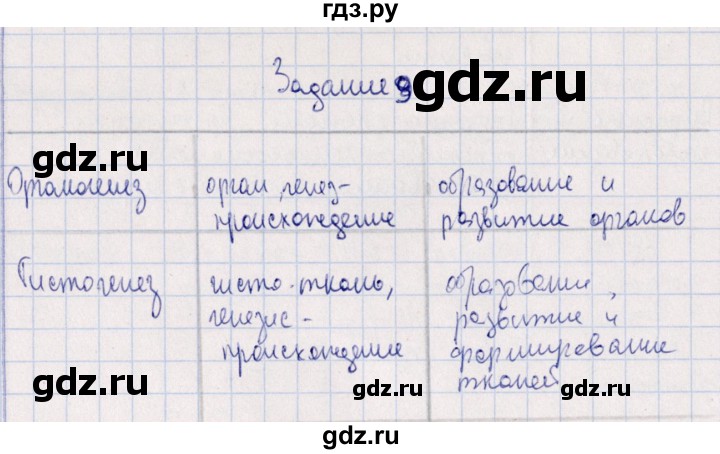 гдз.ру
Задание 9
gdz.ru
gdz.ru
Органогенез орган, генез- образование и
происхождение развитие органов
gdz.ru gdz.ru
Гистогенез гисто-ткань, образование,
генезис- развитие и
происхождение формирование
тканей
gdz.ru gdz.ru gdz.ru
gdz.ru